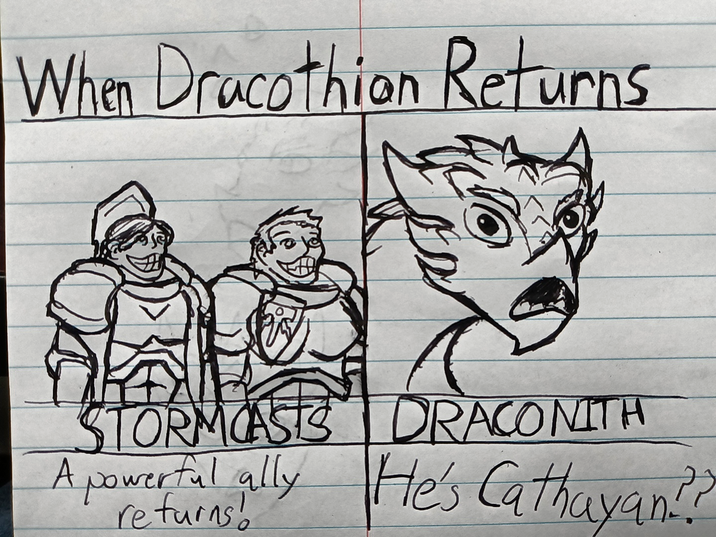 When Dracothian Returns
STORMCASTS
DRACONITH
A powerful ally
returns!
He's Cathayan??